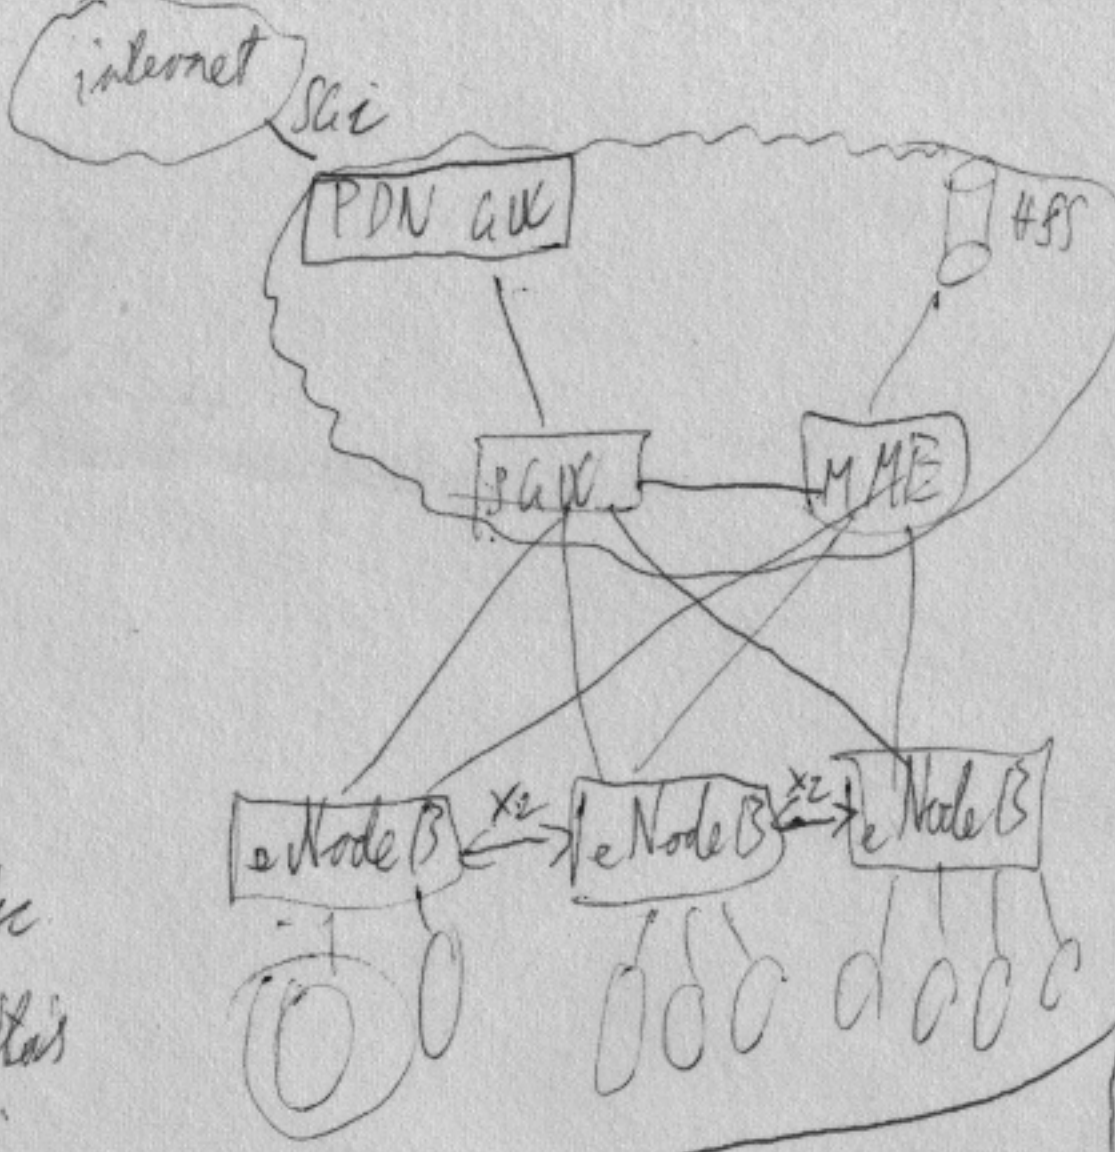 internet
SGi
PDN GW
HSS
SGW
MME
X2
X2
eNodeB
eNodeB
eNodeB